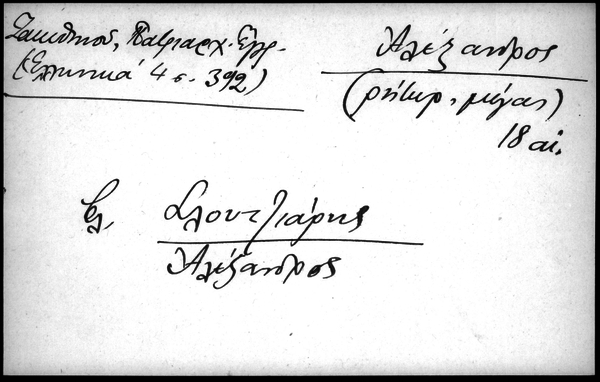 Ζακυθηνού, Πατριαρχ. Έγγρ.
(Ελληνικά 4 σ. 392)
Αλέξανδρος
(ρήτωρ, μέγας)
18 αι.
βλ. Σλουτζιάρης
Αλέξανδρος